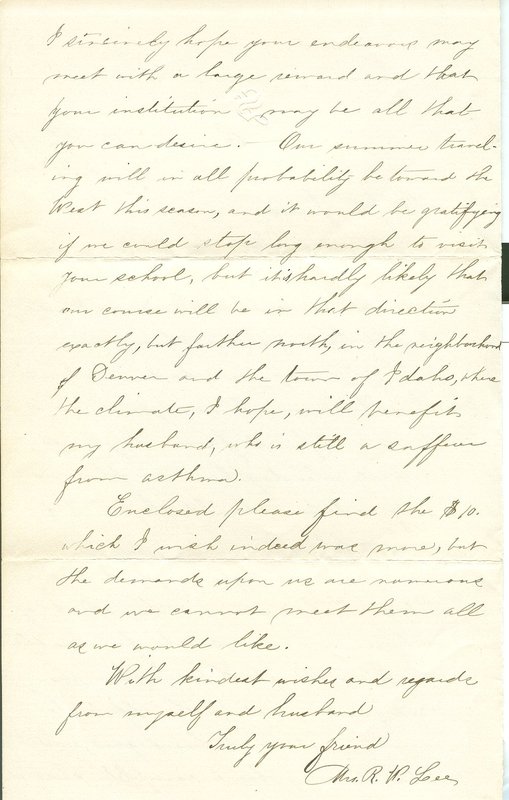 I sincerely hope your endeavors may
meet with a large reward and that
your institution may be all that
you can desire. - Our summer travel-
ing will in all probability be toward the
West this season, and it would be gratifying
if we could stop long enough to visit
your school, but it is hardly likely that
our course will be in that direction
exactly, but farther north, in the neighborhood
of Denver and the town of Idaho, where
the climate, I hope, will benefit
my husband, who is still a sufferer
from asthma.
Enclosed please find the $10.
which I wish indeed was more, but
the demands upon us are numerous
and we cannot meet them all
as we would like.
With kindest wishes and regards
from myself and husband
Truly your friend
Mrs. R. W. Lee